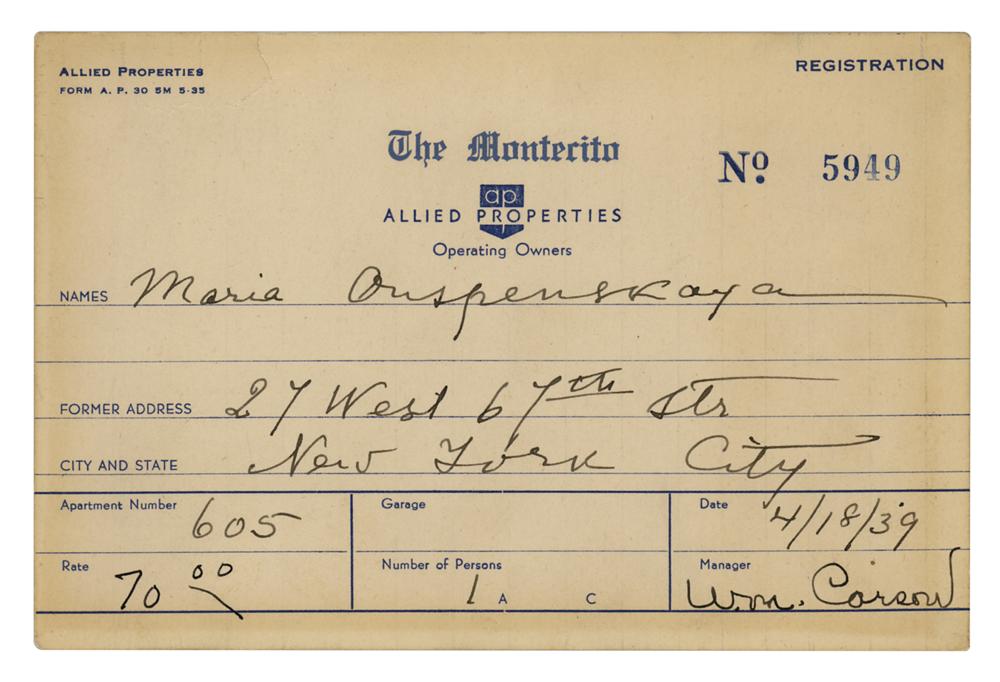 ALLIED PROPERTIES
FORM A. P. 30 5M 5-35
REGISTRATION
The Montecito
Nº 5949
ap
ALLIED PROPERTIES
Operating Owners
NAMES Maria Ouspenskaya
FORMER ADDRESS 27 West 67th Str
CITY AND STATE New York City
Apartment Number 605
Garage
Date 4/18/39
Rate 70 00
Number of Persons 1 A C
Manager Wm. Carson